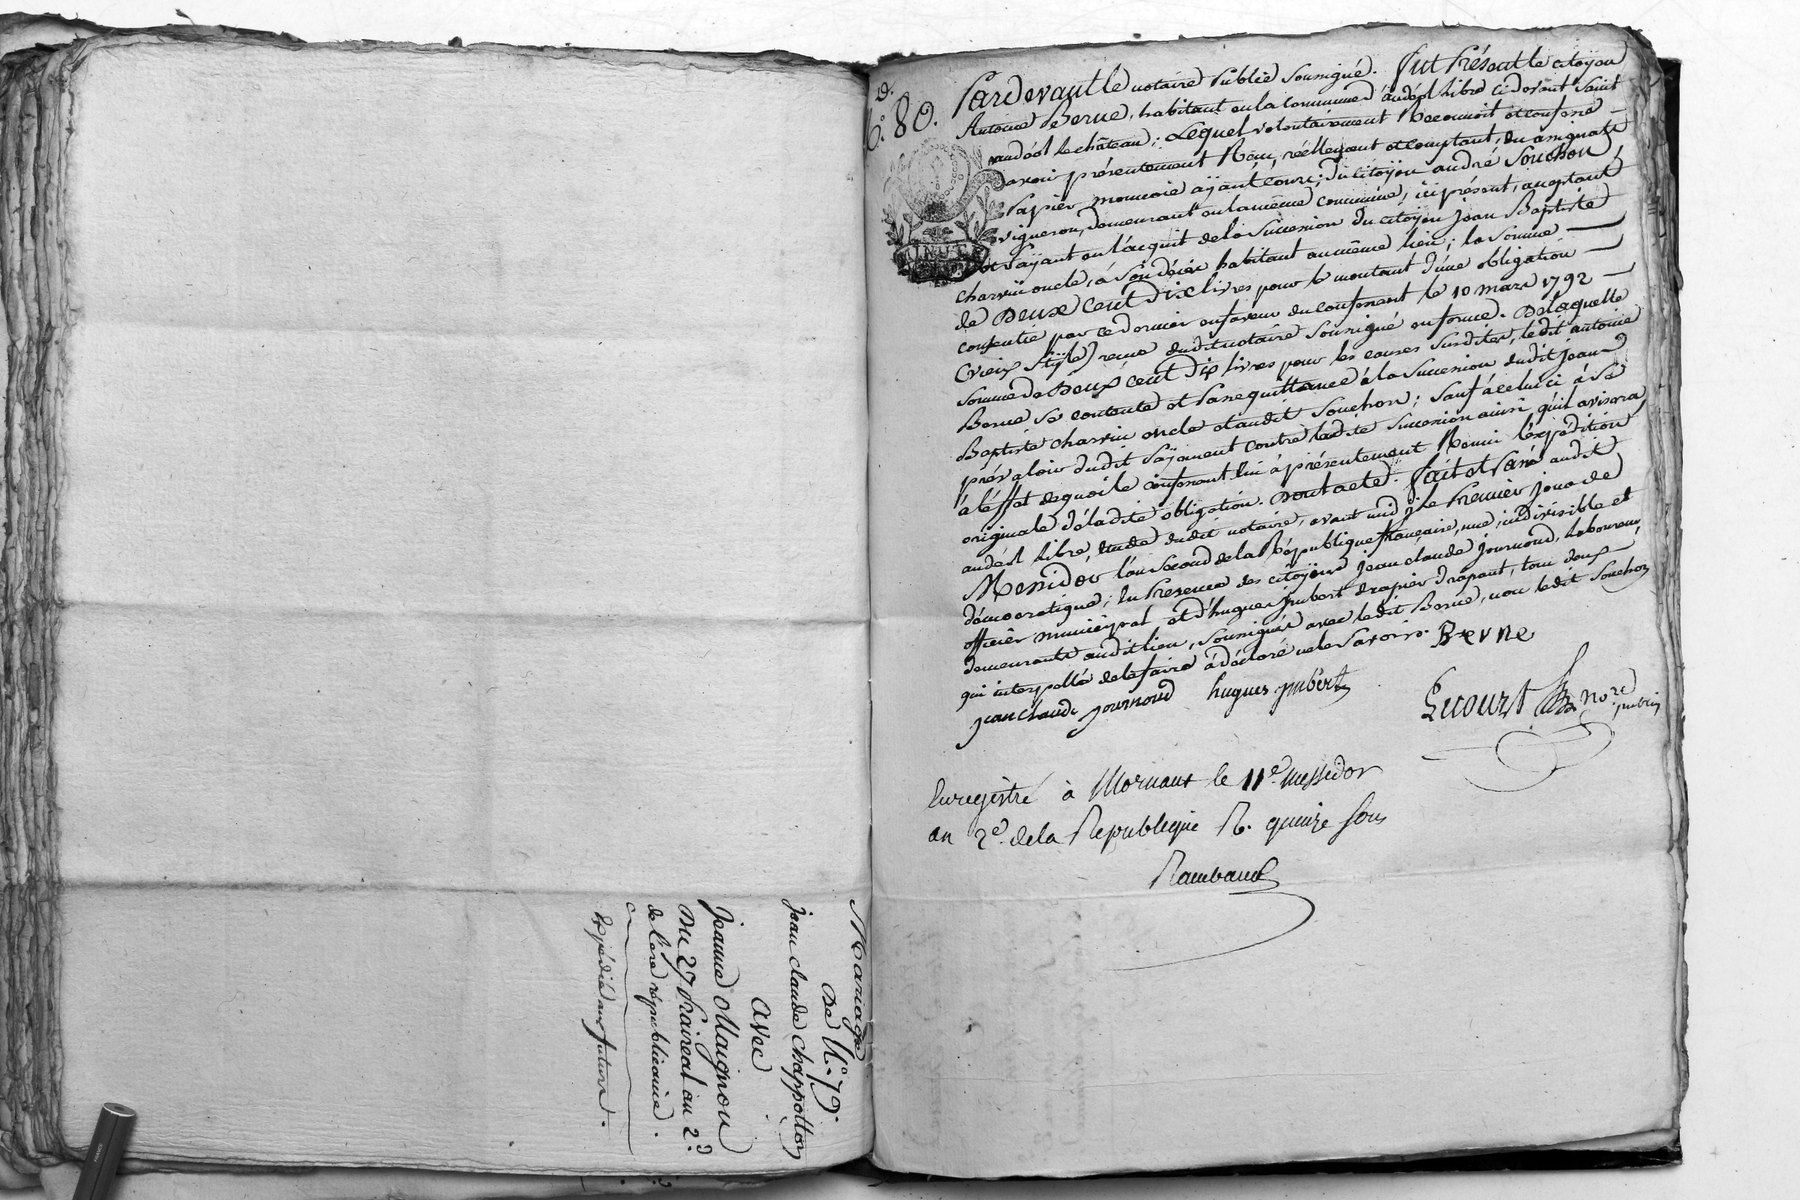 Mariage
De N.° 79.
jean claude chappotton
avec
jeanne Magnou
Du 27 Prairéal an 2.d
de l'ère républicaine.
Expédié aux futurs.
N.° 80.
Pardevant le notaire Public soussigné. fut Présent le citoyen
Antoine Berne, habitant en la commune d'andéol libre cidevant Saint
andéol le château; Lequel volontairement Reconnoit et confesse
avoir présentement Reçu, réellement et comptant, en assignats
Papier monnoie aÿant cours, du citoyen andré Souchon,
vigneron, demeurant en la même commune, ici présent, acceptant
et Paÿant en l'acquit de la Succession du citoÿen Jean Baptiste
charvin oncle, à Son décès habitant au même lieu; la Somme
de Deux cent Dix livres pour le montant d'une obligation
consentie par ce dernier en faveur du confessant le 10 mars 1792
(vieux Stÿle) reçue dudit notaire Soussigné en forme. De laquelle
Somme de Deux cent Dix livres pour les causes Susdites, ledit antoine
Berne Se contente et Passe quittance à la Succession dudit jean
Baptiste charvin oncle et audit Souchon; Sauf à celui ci à Se
prévaloir dudit Paÿement contre ladite Succession ainsi qu'il avisera,
à l'effet de quoi le confessant lui a présentement Remis l'expédition
originale de ladite obligation. Dont acte. fait et Passé audit
andéol libre, étude dudit notaire, avant midi, le Premier jour de
Messidor l'an Second de la République française, une, indivisible et
démocratique; En Présence des citoÿens jean claude journoud, laboureur,
officier municipal, et d'hugues jmbert drapier drapant, tous deux
demeurants audit lieu, Soussignés avec ledit Berne, non ledit Souchon
qui interpellé de le faire à déclaré ne le Savoir. Berne
jean claude journoud hugues jmbert
Lecourt no.re public
Enregistré à Mornant le 11.e messidor
an 2.e de la République R. quinze sous
Rambaud